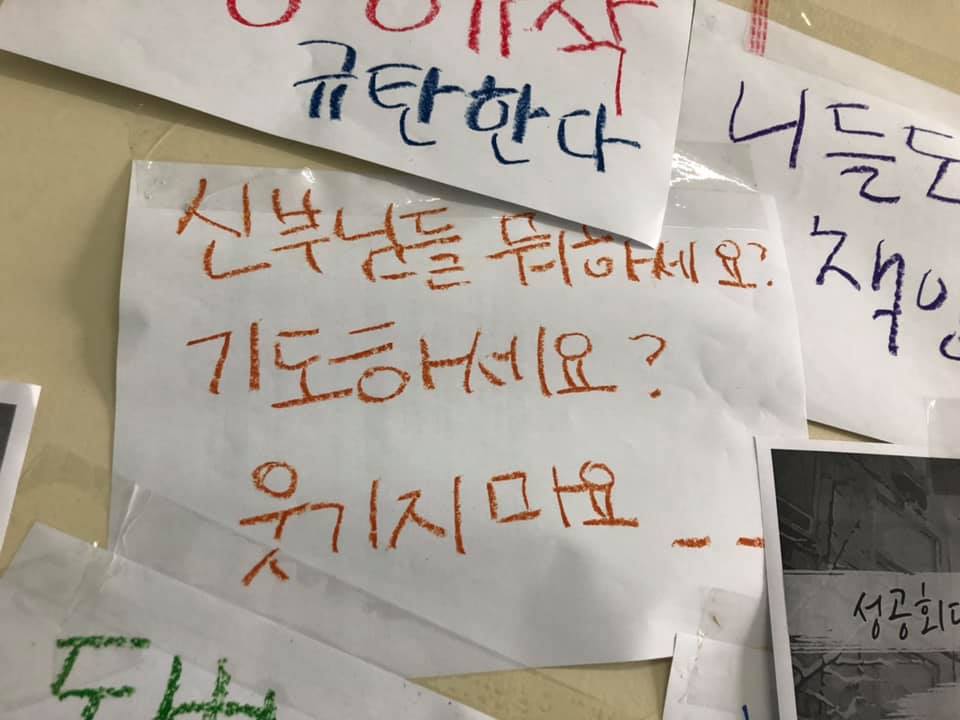 규탄한다
니들도
신부님들 뭐하세요?
기도하세요?
웃기지 마요 _ _
성공회대